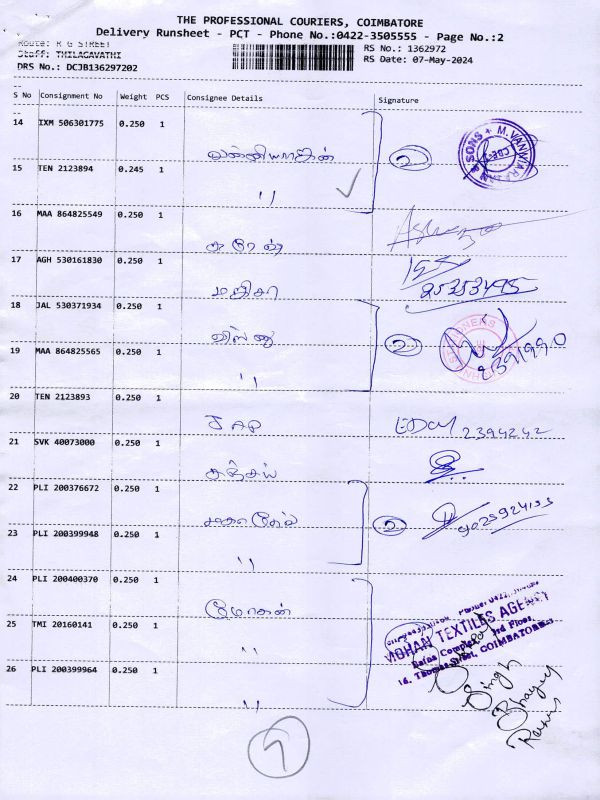 THE PROFESSIONAL COURIERS, COIMBATORE
Delivery Runsheet - PCT - Phone No.:0422-3505555 - Page No.:2
Route: R G STREET
RS No.: 1362972
Staff: THILAGAVATHI
RS Date: 07-May-2024
DRS No.: DCJB136297202
S No Consignment No Weight PCS Consignee Details Signature
14 IXM 506301775 0.250 1
15 TEN 2123894 0.245 1
"
16 MAA 864825549 0.250 1
சுரேஷ்
17 AGH 530161830 0.250 1
18 JAL 530371934 0.250 1
விஷ்ணு
2
19 MAA 864825565 0.250 1
"
20 TEN 2123893 0.250 1
JAP
2394242
21 SVK 40073000 0.250 1
சஞ்சய்
22 PLI 200376672 0.250 1
2
23 PLI 200399948 0.250 1
"
24 PLI 200400370 0.250 1
மோகன்
25 TMI 20160141 0.250 1
"
MOHAN TEXTILES AGENCY
COIMBATORE
26 PLI 200399964 0.250 1
"
Singh
7